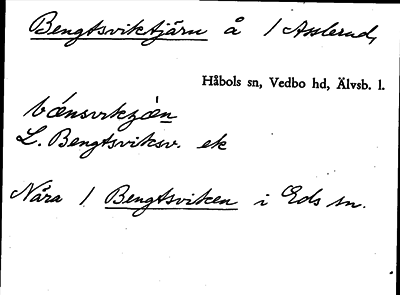 Bengtsviktjärn å / Asslerud,
Håbols sn, Vedbo hd, Älvsb. l.
L. Bengtsviksv. ek
Nära / Bengtsviken i Eds sn.